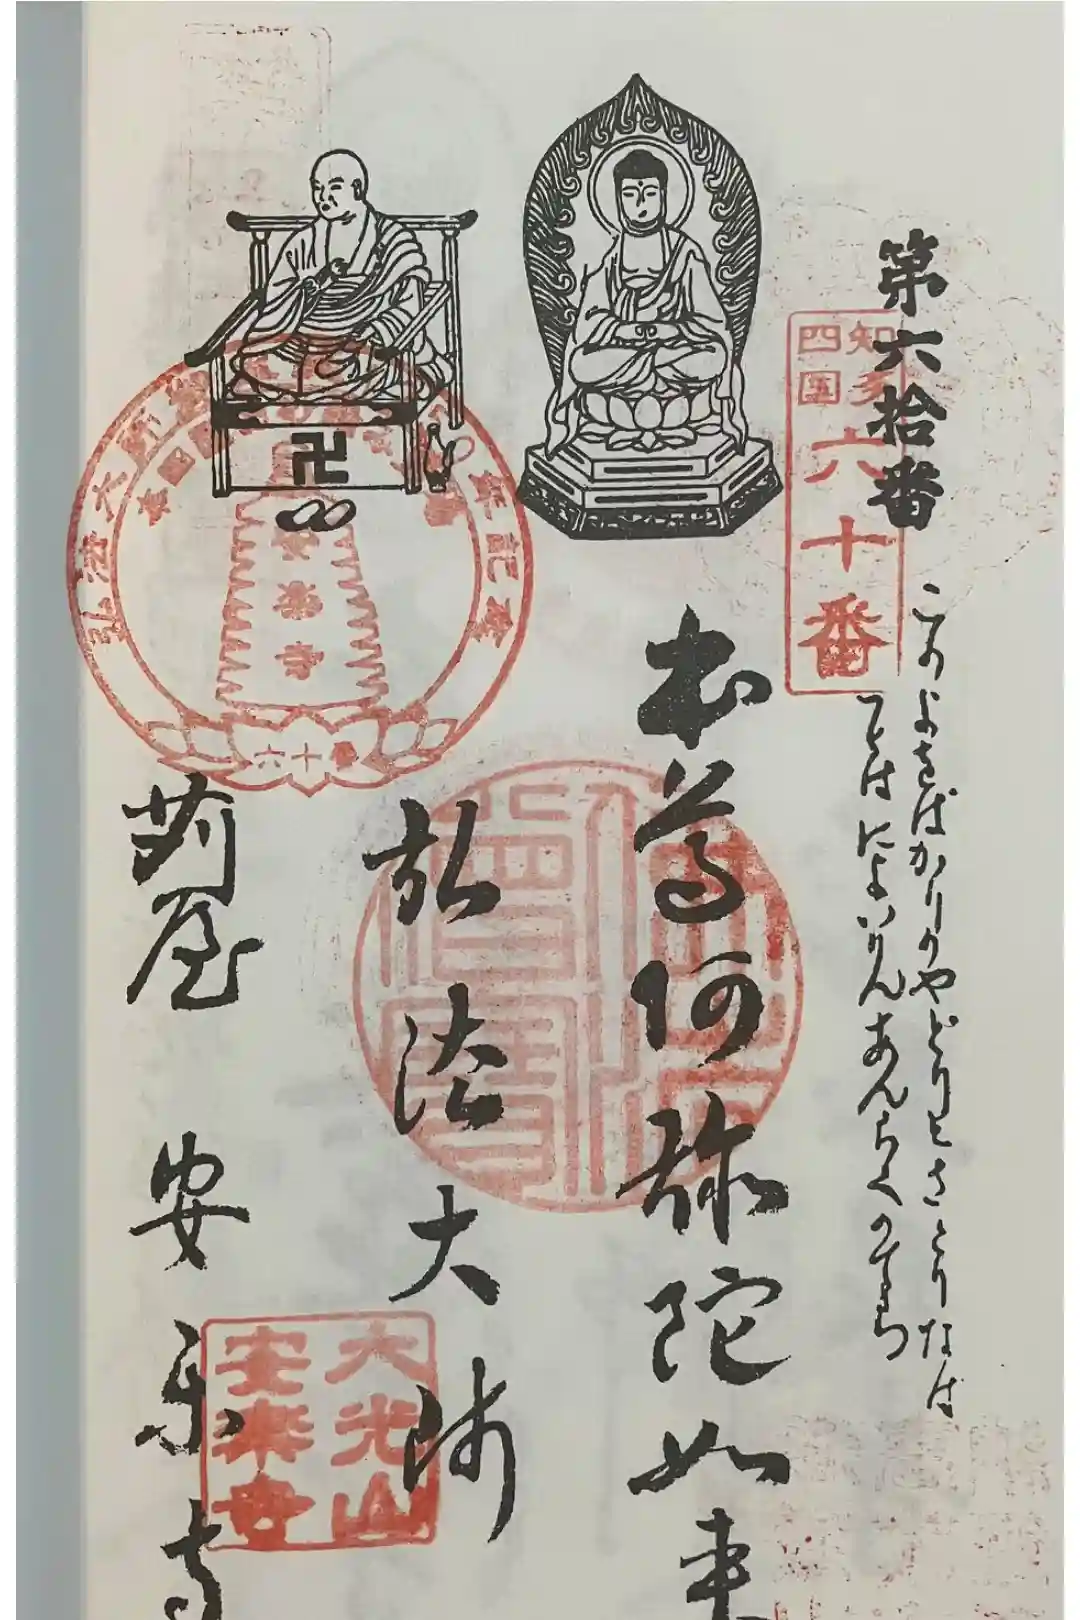 第六拾番
知多
四国
六十番
このよさばかりのやどりとさとりなば
とはによいりんあんらくのまち
本尊阿弥陀如来
弘法大師
苅屋 安楽寺
安楽寺
六十番
大光山
安楽寺